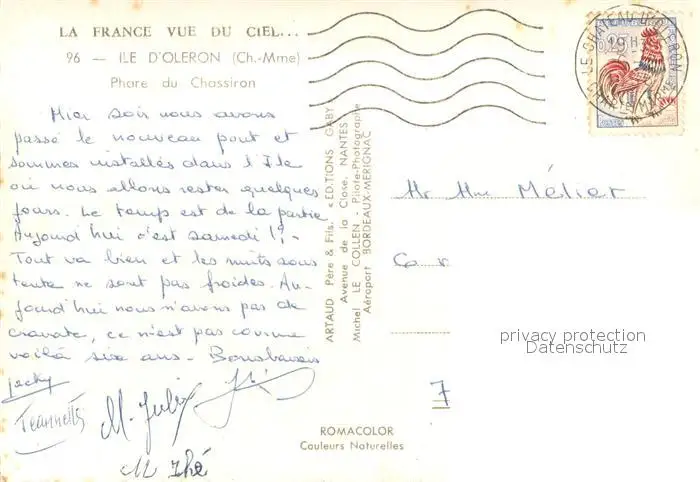 LA FRANCE VUE DU CIEL...
96 — ILE D'OLERON (Ch.-Mme)
Phare du Chassiron
Hier soir nous avons
passé le nouveau pont et
sommes installés dans l'Ile
où nous allons rester quelques
jours. Le temps est de la partie
Aujourd'hui c'est samedi !
Tout va bien et les nuits sous
tente ne sont pas froides. Au-
jourd'hui nous n'avons pas de
cravate, ce n'est pas comme
voilà six ans. Bons baisers
Jacky
Jeannette
M.
ARTAUD Père & Fils, « EDITIONS GABY »
Avenue de la Close, NANTES
Michel LE COLLEN - Pilote-Photographe
Aéroport BORDEAUX-MERIGNAC
0,25
19 H
LE CHATEAU D'OLERON
Mr Mme Mélier
privacy protection
Datenschutz
7
ROMACOLOR
Couleurs Naturelles